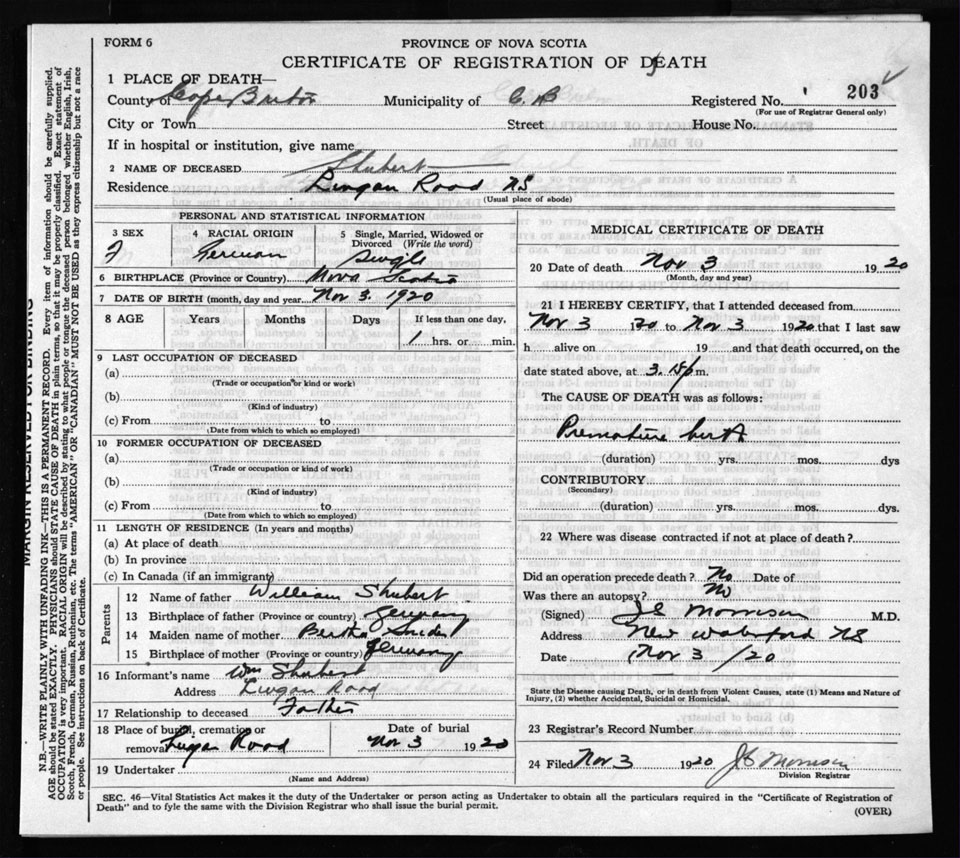 FORM 6
PROVINCE OF NOVA SCOTIA
CERTIFICATE OF REGISTRATION OF DEATH
1 PLACE OF DEATH—
County of Cape Breton Municipality of C. B Registered No. 203
(For use of Registrar General only)
City or Town Street House No.
If in hospital or institution, give name
2 NAME OF DECEASED Shubert
Residence Lingan Road NS
(Usual place of abode)
PERSONAL AND STATISTICAL INFORMATION
3 SEX F
4 RACIAL ORIGIN German
5 Single, Married, Widowed or Divorced (Write the word) Single
6 BIRTHPLACE (Province or Country) Nova Scotia
7 DATE OF BIRTH (month, day and year) Nov 3. 1920
8 AGE Years Months Days If less than one day, 1 hrs. or min.
9 LAST OCCUPATION OF DECEASED
(a)
(Trade or occupation or kind or work)
(b)
(Kind of industry)
(c) From to
(Date from which to which so employed)
10 FORMER OCCUPATION OF DECEASED
(a)
(Trade or occupation or kind or work)
(b)
(Kind of industry)
(c) From to
(Date from which to which so employed)
11 LENGTH OF RESIDENCE (In years and months)
(a) At place of death
(b) In province
(c) In Canada (if an immigrant)
Parents
12 Name of father William Shubert
13 Birthplace of father (Province or country) Germany
14 Maiden name of mother Bertha
15 Birthplace of mother (Province or country) Germany
16 Informant's name Wm Shubert
Address Lingan Road
17 Relationship to deceased Father
18 Place of burial, cremation or removal Lingan Road
Date of burial Nov 3 1920
19 Undertaker
(Name and Address)
MEDICAL CERTIFICATE OF DEATH
20 Date of death Nov 3 1920
(Month, day and year)
21 I HEREBY CERTIFY, that I attended deceased from
Nov 3 20 to Nov 3 1920 that I last saw
h alive on 19 and that death occurred, on the
date stated above, at 3. 15 p m.
The CAUSE OF DEATH was as follows:
Premature birth
(duration) yrs. mos. dys
CONTRIBUTORY
(Secondary)
(duration) yrs. mos. dys.
22 Where was disease contracted if not at place of death?
Did an operation precede death? No Date of
Was there an autopsy? No
(Signed) J S Morrison M.D.
Address New Waterford NS
Date Nov 3 / 20
State the Disease causing Death, or in death from Violent Causes, state (1) Means and Nature of
Injury, (2) whether Accidental, Suicidal or Homicidal.
23 Registrar's Record Number
24 Filed Nov 3 1920 J S Morrison
Division Registrar
SEC. 46—Vital Statistics Act makes it the duty of the Undertaker or person acting as Undertaker to obtain all the particulars required in the "Certificate of Registration of
Death" and to fyle the same with the Division Registrar who shall issue the burial permit.
(OVER)
MARGIN RESERVED FOR BINDING
N.B.—WRITE PLAINLY WITH UNFADING INK—THIS IS A PERMANENT RECORD. Every item of information should be carefully supplied.
AGE should be stated EXACTLY. PHYSICIANS should STATE CAUSE OF DEATH in plain terms, so that it may be properly classified. Exact statement of
OCCUPATION is very important. RACIAL ORIGIN will be described by stating to what people or tongue the deceased person belonged whether English, Irish,
Scotch, French, German, Russian, Ruthenian, etc. The terms "AMERICAN" OR "CANADIAN" MUST NOT BE USED as they express citizenship but not a race
or people. See instructions on back of Certificate.